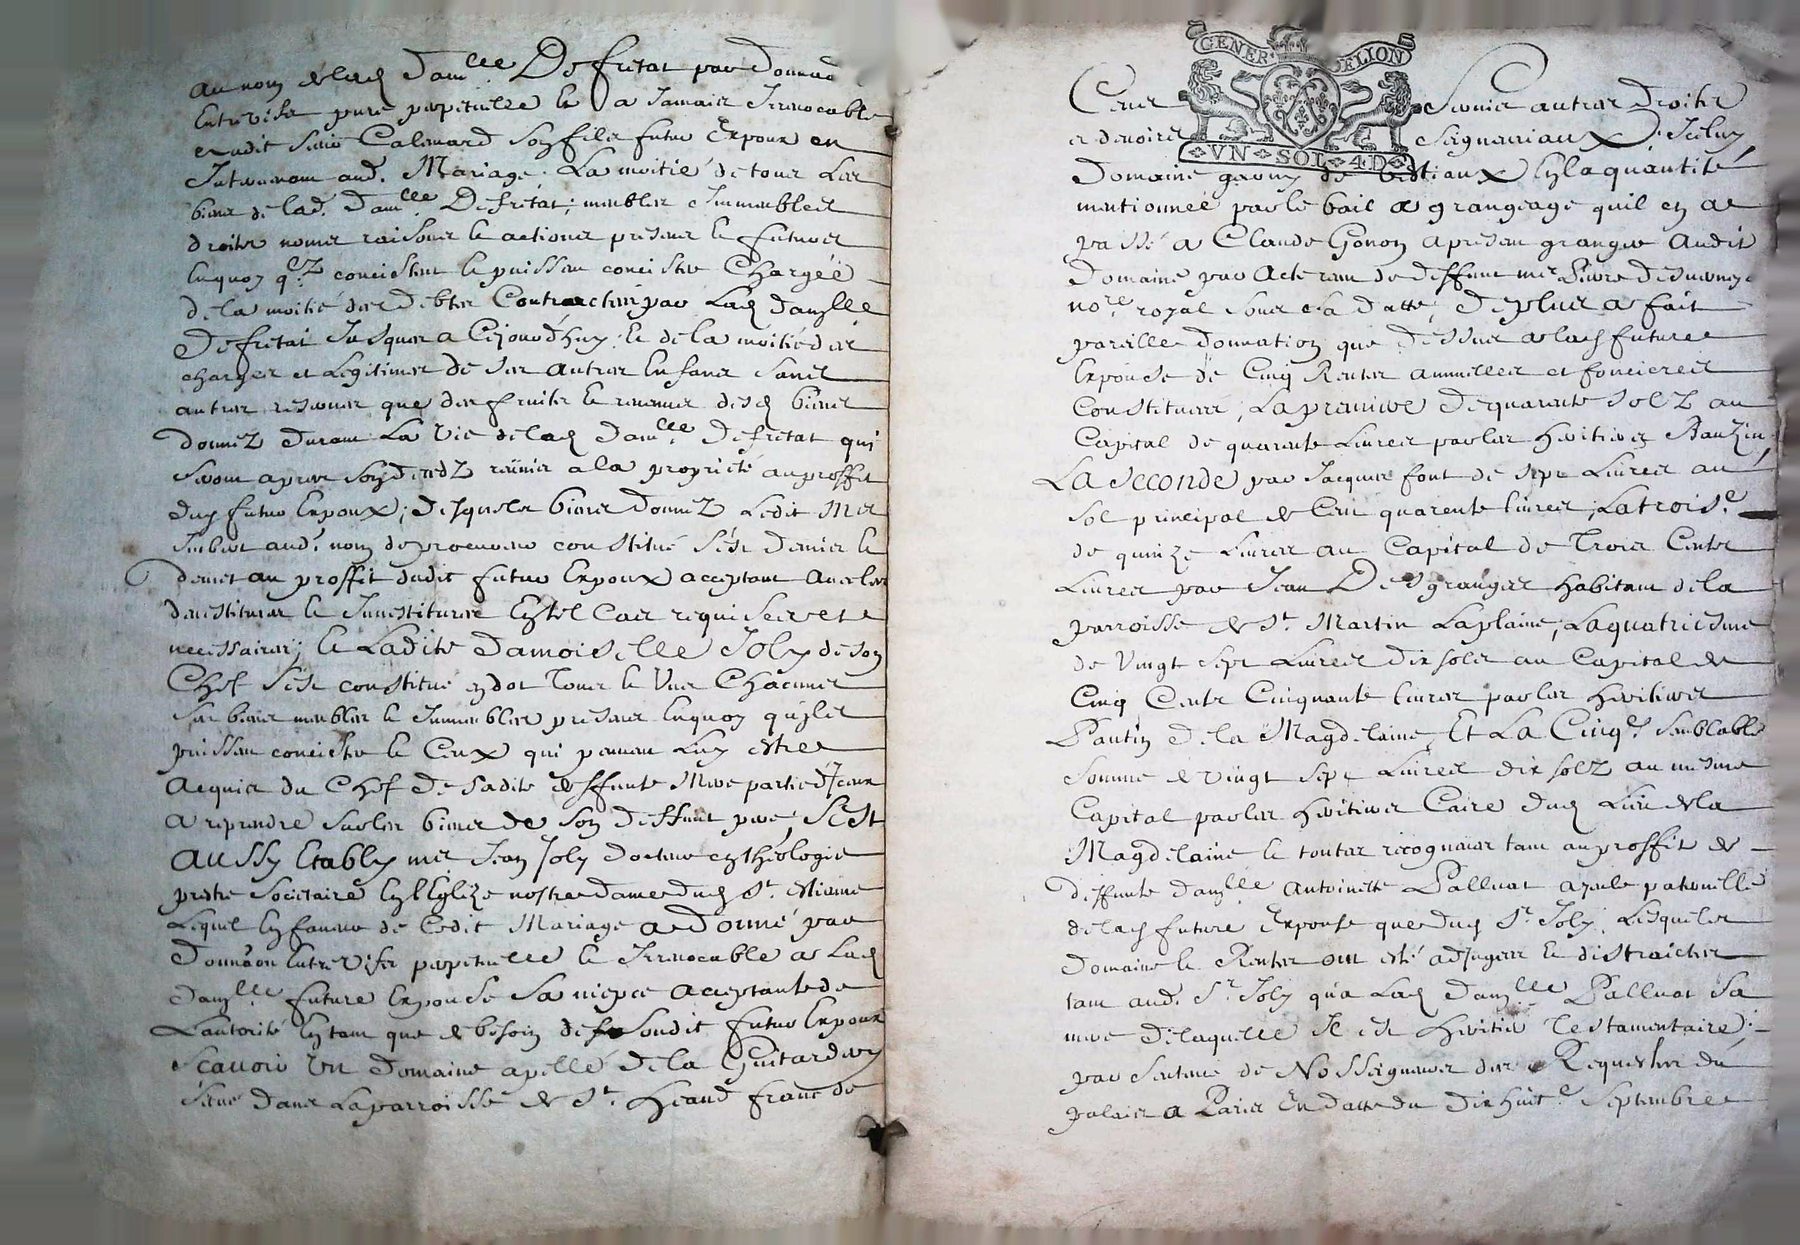 au nom de lad. Damlle Defretat par Donnaon
Entrevifs pure perpetuelle et a Jamais Irrevocable
audit sieur Calemard son fils futur Expoux en
Mariage. La moitié de tous Les
biens de lad. Damlle Defretat; meubles Immeubles
droits noms raisons et actions presens et futurs
En quoy qlz concistent et puissent concistre Chargée
de la moitié des debtes Contractées par Lad. damlle
Defretat Jusques a Cejourdhuy, et de la moitié des
charges et Legitimes de ses autres Enfans sans
autres reserves que des fruits et revenus desd. biens
donnez durant La vie de lad. Damlle Defretat qui
seront apres son deredz reünis a la proprieté au proffit
dud. futur Expoux; desquels biens donnez Ledit Mre
Imbert aud. nom de procureur constitué s'est demis et
demet au proffit dudit futur Expoux acceptant avec les
devestitures et Investitures En tel Cas requises et
necessaires; et Ladite Damoiselle Joly de son
Chef s'est constitué en dot Tous et Uns Chacuns
ses biens meubles et Immeubles presens En quoy qu'ils
puissent concistre et Ceux qui peuvent Luy estre
acquis du Chef de sadite deffunte Mere partie d'Iceux
a reprendre sur les biens de son deffunt pere; S'est
aussy Estably mre Jean Joly docteur en theologie
prestre societaire En l'Eglize nostre dame dud. St. Estienne
Lequel En faveur de Cedit Mariage a donné par
Donnaon Entrevifs perpetuelle et Irrevocable a Lad.
damlle future Expouse Sa niepce acceptante de
L'autorité En tant que de besoin de sondit futur Expoux
scavoir Un Domaine apellé de la Guitardery
situé dans La parroisse de St. Heand franc de
GENERALITÉ DE LION
VN SOL 4 D
Cens Servis autres droits
et devoirs seigneuriaux, Iceluy
Domaine garny de bestiaux En la quantité
mentionnée par le bail a grangeage qu'il en a
passé a Claude Gonon a present granger audit
Domaine par Acte receu de deffunt mre Pierre
nore. royal sous sa datte; de plus a fait
pareille donnation que dessus a lad. future
Expouse de Cinq Rentes annuelles et foncieres
Constituées; La premiere de quarante solz au
Capital de quarante Livres par les heritiers
La seconde par Jacques font de sept Livres un
sol principal de Cent quarente livres; La troise.
de quinze Livres au Capital de Trois Cents
Livres par Jean Desgranges habitant de la
parroisse de St. Martin Laplaine; La quatriesme
de Vingt sept Livres dix sols au Capital de
Cinq Cents Cinquante livres par les heritiers
Pautin de la Magdelaine Et La Cinqe. semblable
somme de vingt sept Livres dix solz au mesme
Capital par les heritiers Caire dud. Lieu de la
Magdelaine et toutes recognues tant au proffit de
deffunte damlle Antoinette Palluat ayeule paternelle
de lad. future Expouse que dud. Sr. Joly, Lesquels
Domaine et Rentes ont esté adjugees et distraictes
tant aud. Sr. Joly qu'a Lad. damlle Palluat sa
mere de laquelle Il est heritier Testamentaire
par sentence de Nosseigneurs des Requestes du
palais a Paris En datte du dixhuite. Septembre